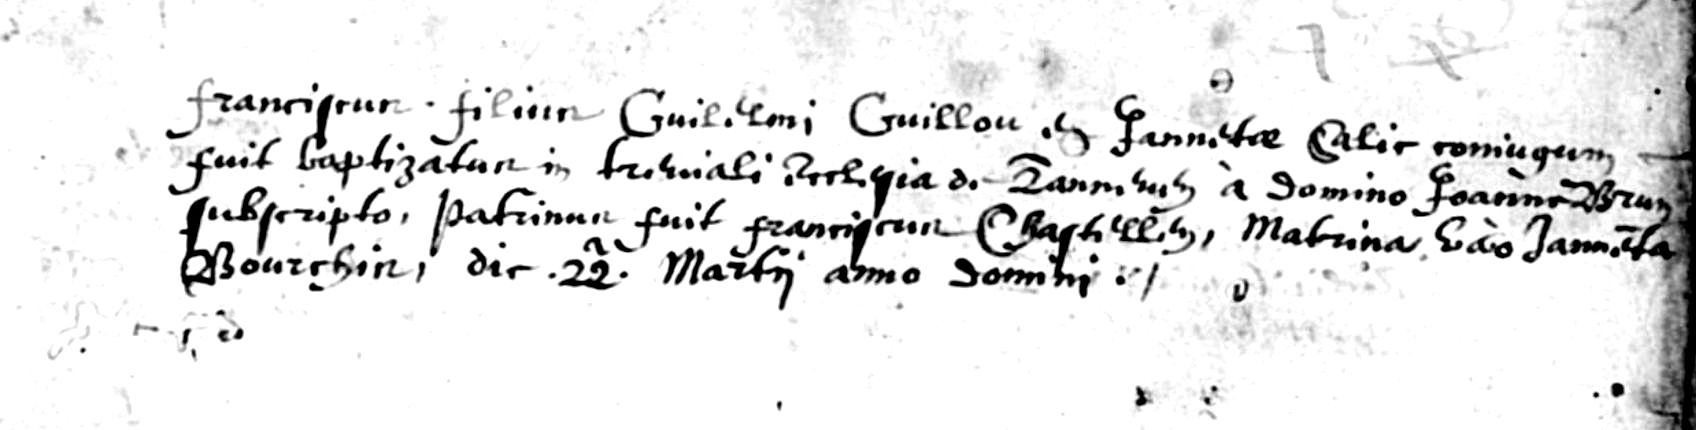 franciscus . filius Guilelmi Guillou et Jannetæ Calic coniugum
fuit baptizatus in treviali ecclesia de à domino Joanne Brun
subscripto, Patrinus fuit franciscus Chastellen, Matrina vào Janneta
Bourchis, die .22ª. Martij anno Domini ./